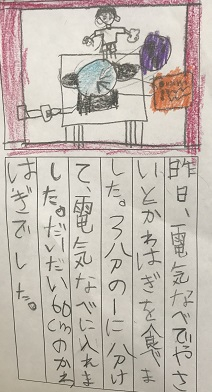 昨日、電気なべでやさ
いとかわはぎを食べま
した。3分の一に分け
て、電気なべに入れま
した。だいだい60cmのかわ
はぎでした。